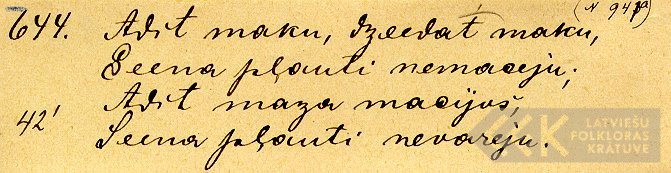 (N 941a)
644. Adit maku, dzeedat maku,
Seena pļauti nemaceju;
42' Adit maza macijos,
Seena pļauti nevareju.
LATVIEŠU
FOLKLORAS
KRĀTUVE